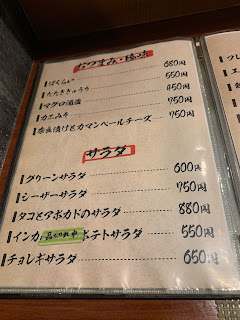 おつまみ・珍味
ばくらい 680円
たたききゅうり 550円
マグロ酒盗 450円
カニみそ 750円
奈良漬けとカマンベールチーズ 750円
サラダ
グリーンサラダ 600円
シーザーサラダ 750円
タコとアボカドのサラダ 880円
インカ 品きれ中 ポテトサラダ 550円
チョレギサラダ 650円